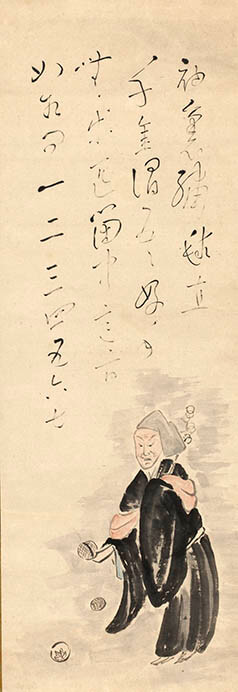 袖裏繍毬直
千金謂言好手
無等匹箇中意旨
相問一二三四五六七